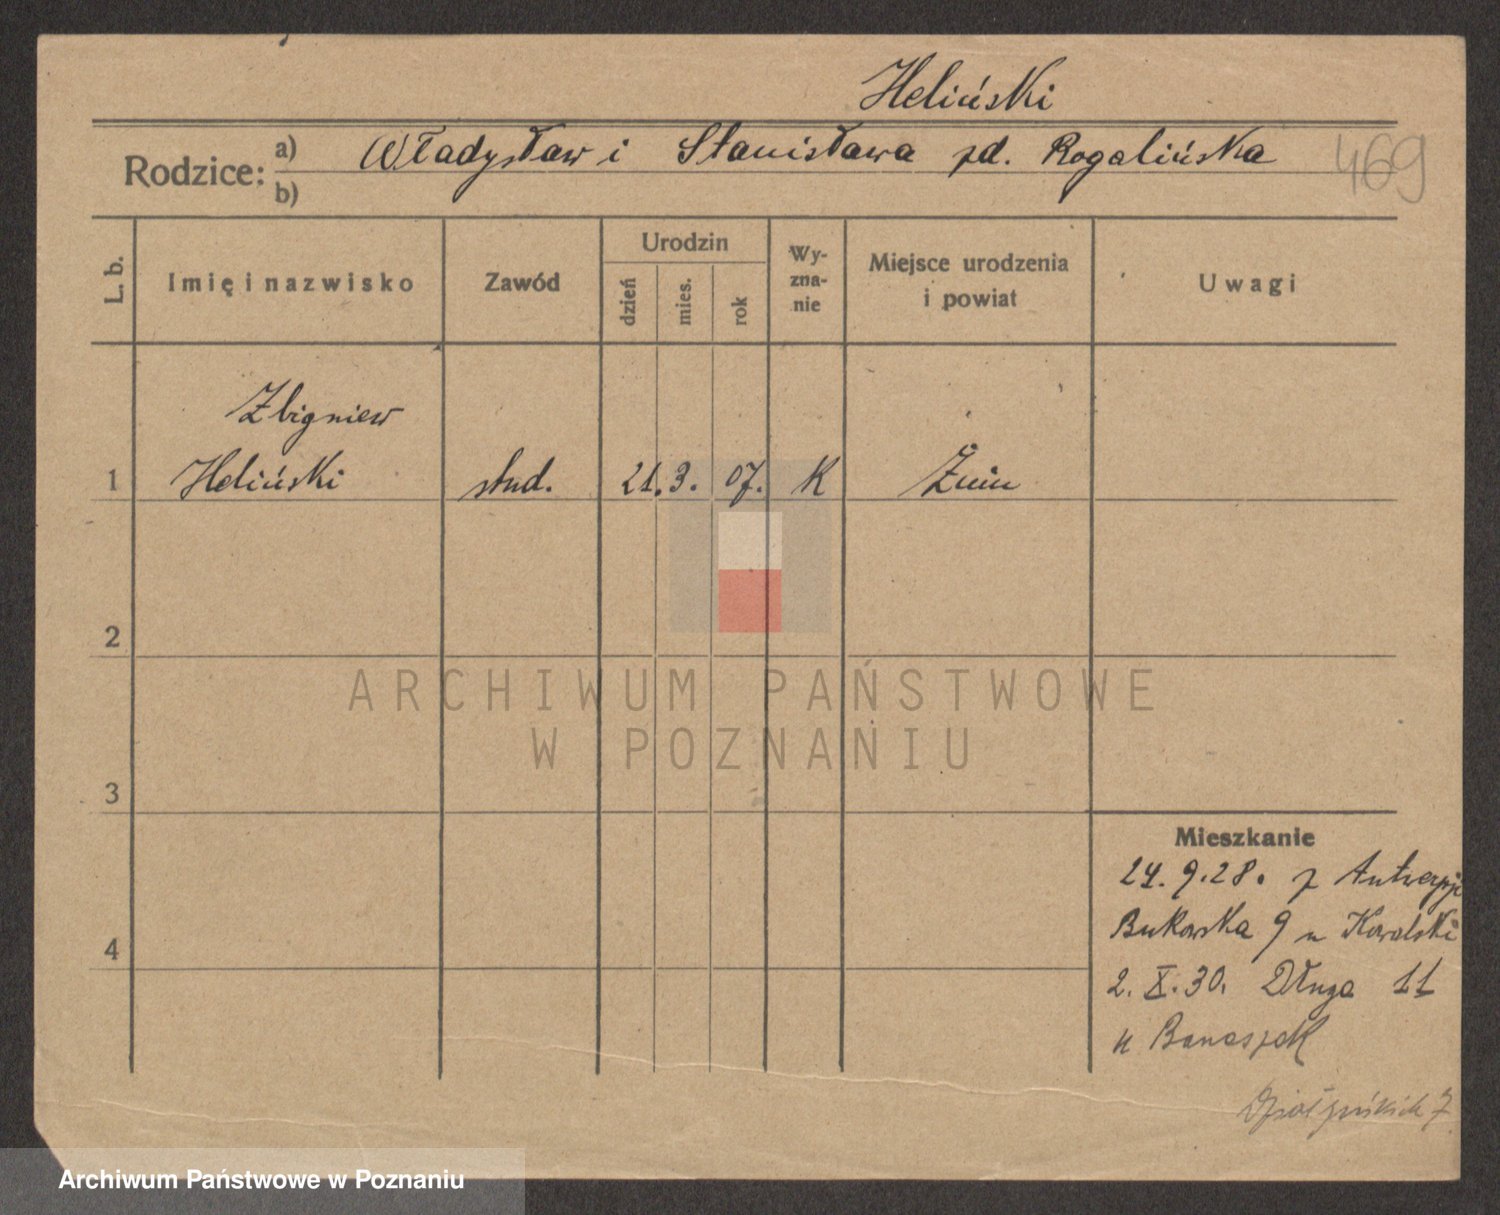 Heliński
Rodzice: a) Władysław i Stanisława zd. Rogalińska 469
b)
L. b. Imię i nazwisko Zawód Urodzin dzień mies. rok Wy-zna-nie Miejsce urodzenia i powiat Uwagi
Zbigniew
1 Heliński stud. 21. 3. 07. K Żnin
2
ARCHIWUM PAŃSTWOWE
W POZNANIU
3
Mieszkanie
24. 9. 28. z Antwerpji
Bukowska 9 u Kowalski
4
2. X. 30. Długa 11
u Banaszak
Działyńskich 7
Archiwum Państwowe w Poznaniu